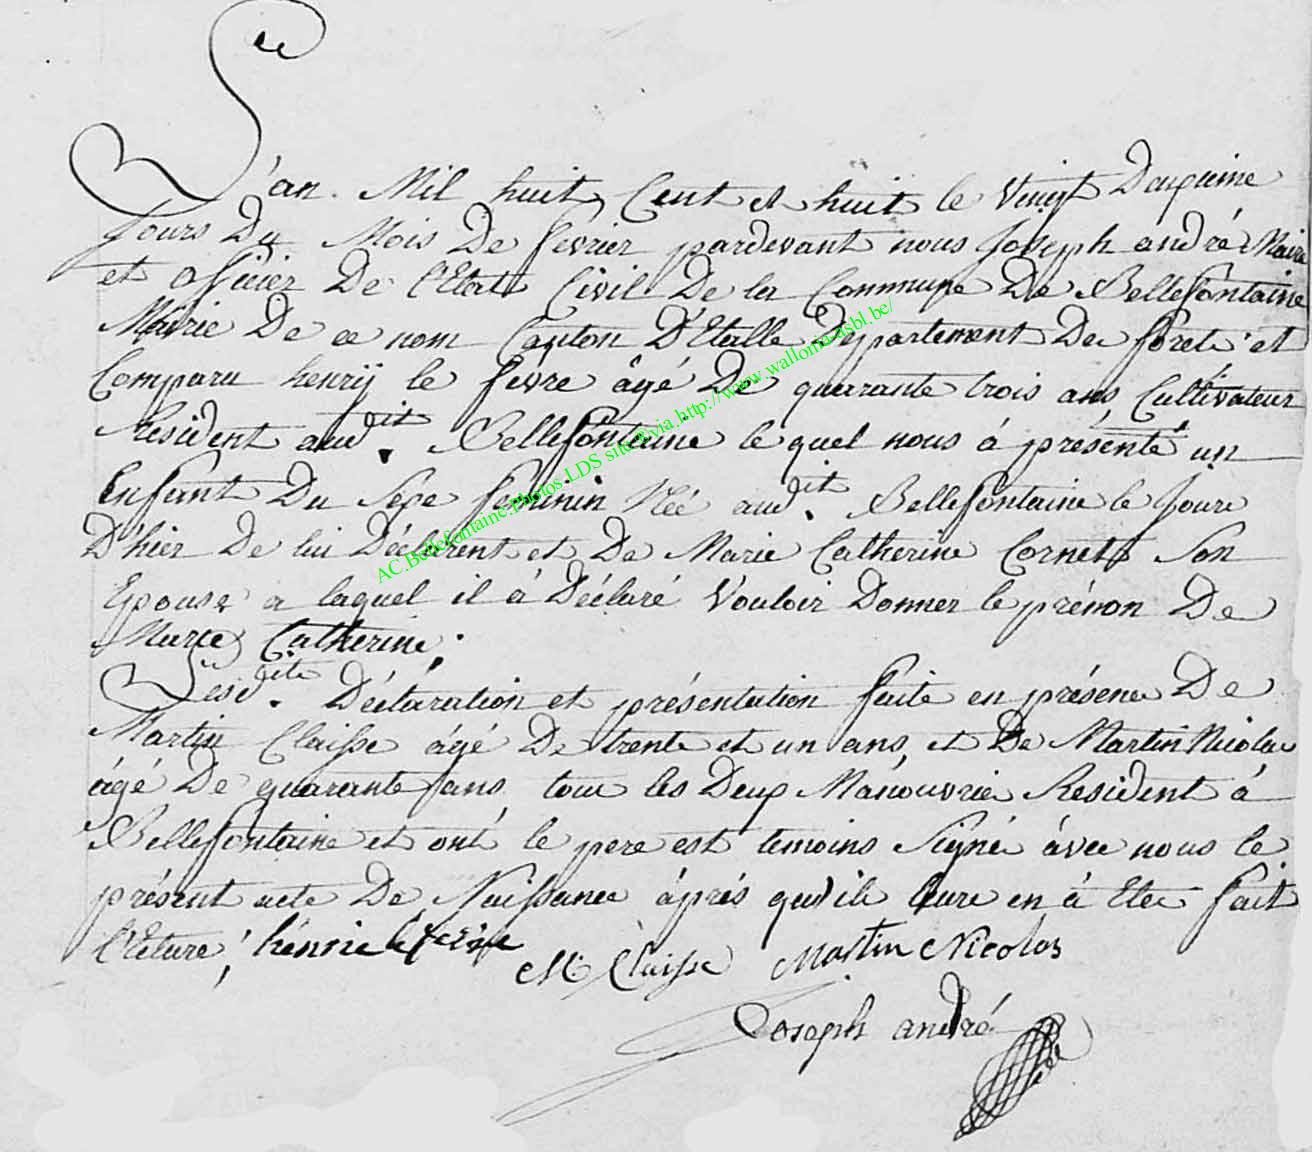 L'an Mil huit Cent et huit le Vingt Deuxieme
Jours Du Mois De fevrier pardevant nous Joseph andré Maire
et officier De l'Etat Civil De la Commune De Bellefontaine
Mairie De ce nom Canton D'Etalle Departement De foret et
Comparu henrÿ le fevre âgé De quarante trois ans, Cultivateur
Resident audit. Bellefontaine le quel nous à présenté un
Enfant Du Sexe feminin Néé audit. Bellefontaine le Jour
D'hier De lui Déclarent et De Marie Catherine Cornet Son
Epouse a laquel il à Déclaré Vouloir Donner le prénon De
Marie Catherine;
Lesdite. Déclaration et présentation faite en présence De
Martin Claisse âgé De trente et un ans, et De Martin Nicolas
âgé De quarante ans, tous les Deux Manouvrie Resident à
Bellefontaine et ont le pere est temoins Signé avec nous le
présent acte De Naissance après qu'ile leure en à Etee fait
lecture; hénrie le fevre
M. Claisse Martin Nicolas
Joseph andré
AC.Bellefontaine.Photos.LDS site©via.http://www.wallonia.asbl.be/